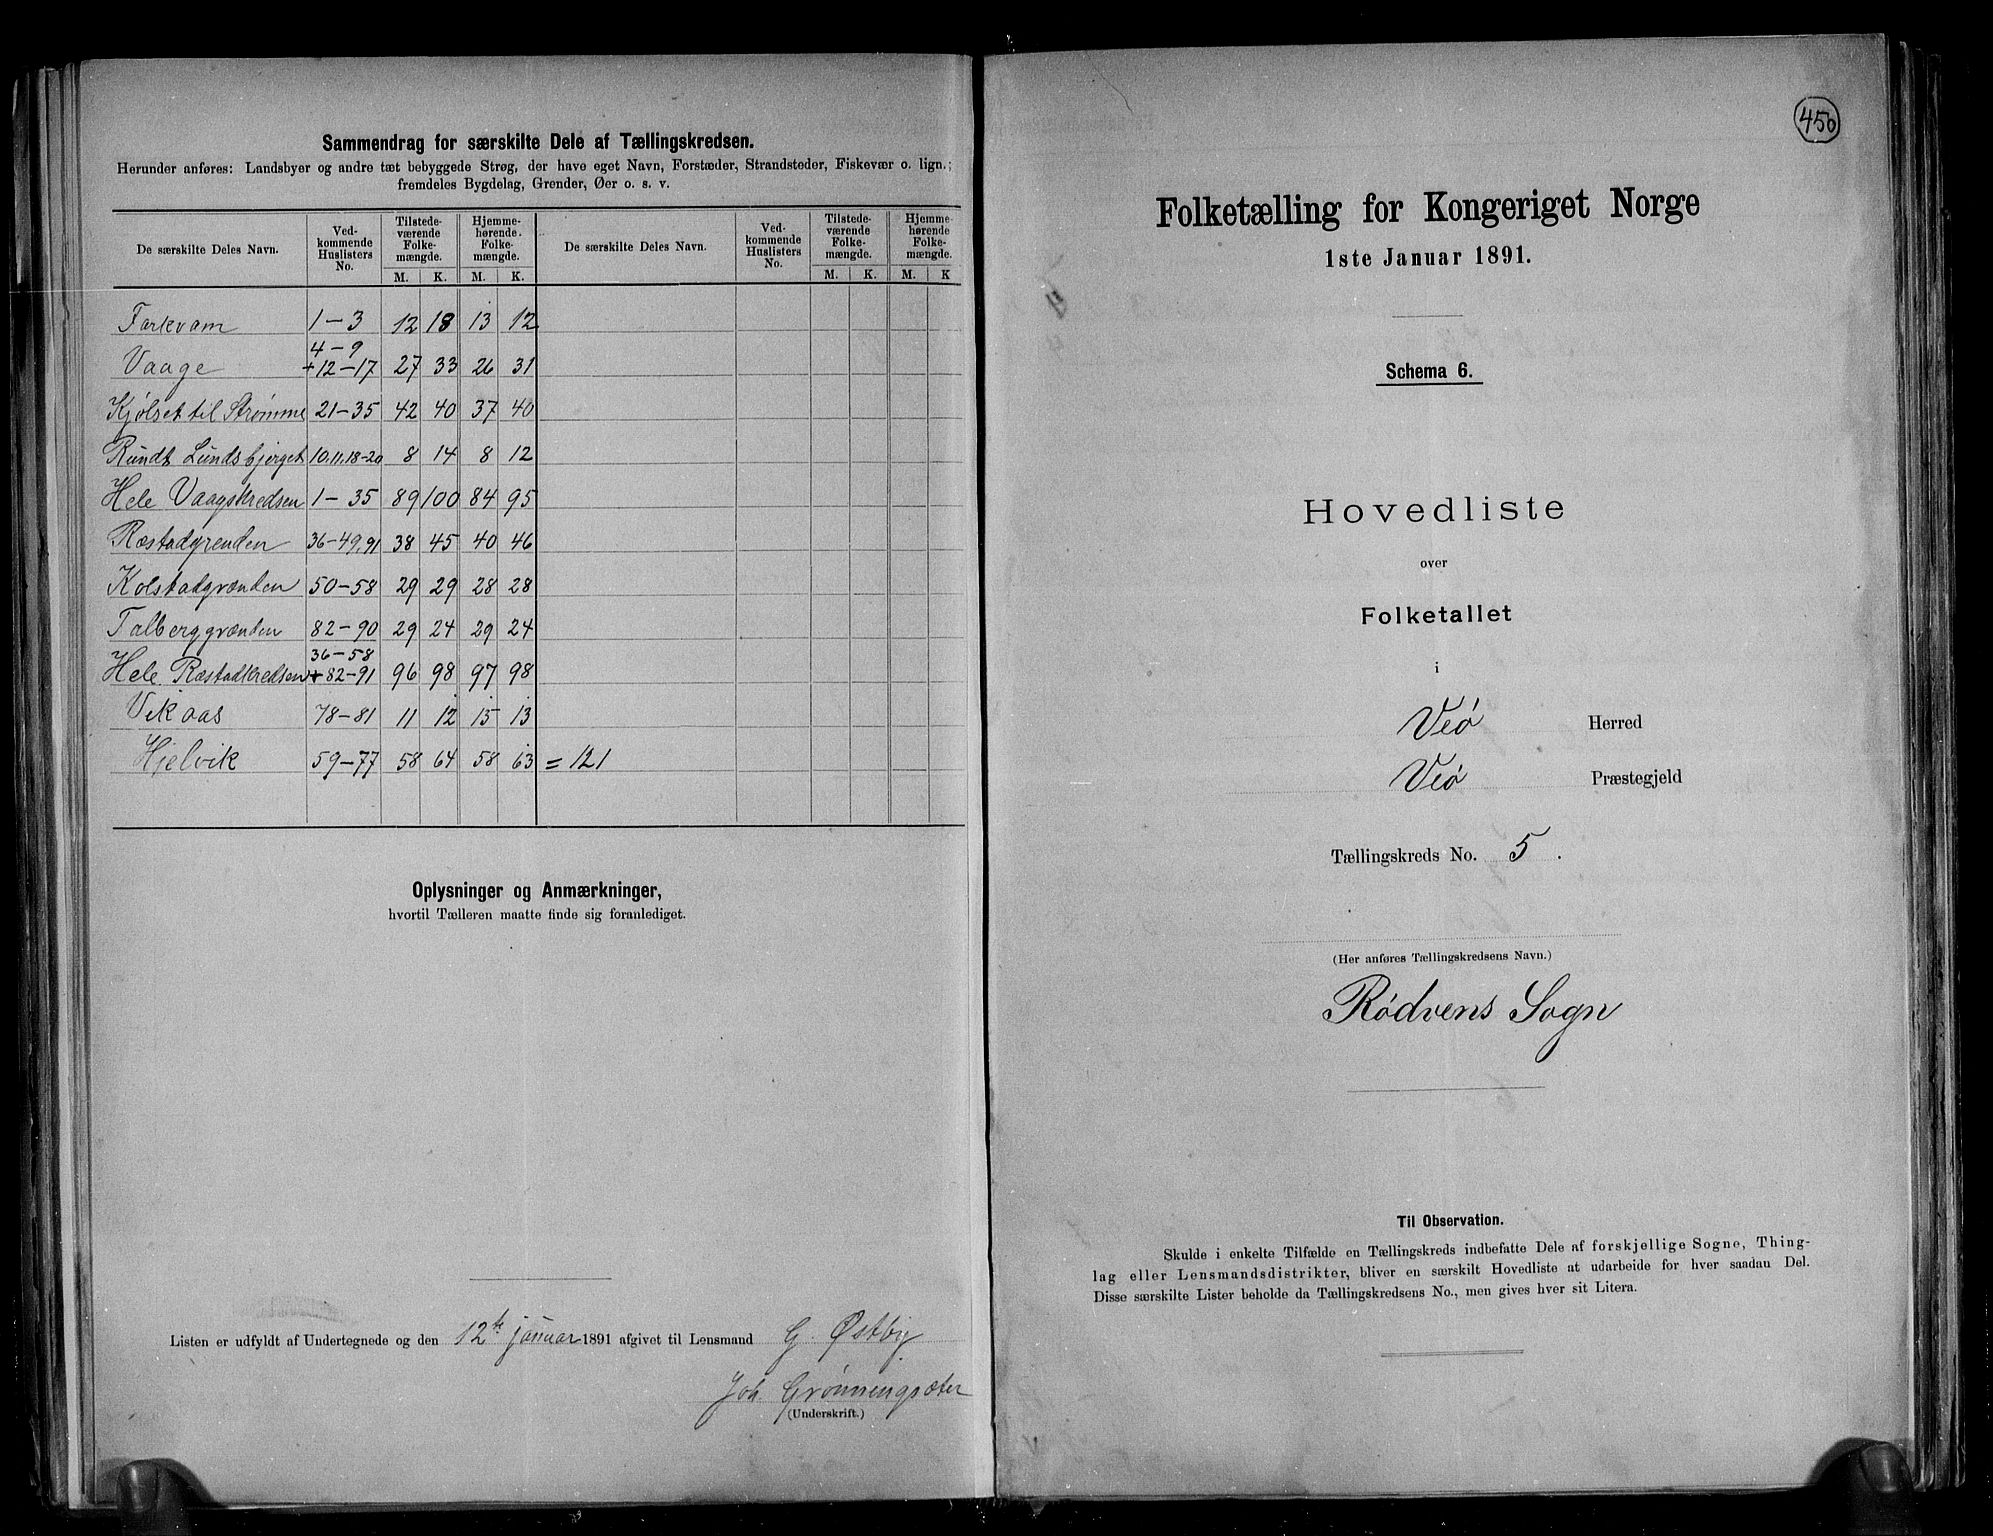 Sammendrag for særskilte Dele af Tællingskredsen.
Herunder anføres: Landsbyer og andre tæt bebyggede Strøg, der have eget Navn, Forstæder, Strandsteder, Fiskevær o. lign.;
fremdeles Bygdelag, Grender, Øer o. s. v.
De særskilte Deles Navn. Ved-kommende Huslisters No. Tilstede-værende Folke-mængde. Hjemme-hørende. Folke-mængde. De særskilte Deles Navn. Ved-kommende Huslisters No. Tilstede-værende Folke-mængde. Hjemme-hørende Folke-mængde.
M. K. M. K. M. K. M. K
Torkvam 1-3 12 18 13 12
Vaage 4-9 +12-17 27 33 26 31
Kjølset til Strømme 21-35 42 40 37 40
Rundt Lundsbjerget 10.11.18-20 8 14 8 12
Hele Vaagskredsen 1-35 89 100 84 95
Ræstadgrenden 36-49,91 38 45 40 46
Kolstadgrænden 50-58 29 29 28 28
Talberggrænden 82-90 29 24 29 24
Hele Ræstadkredsen 36-58 +82-91 96 98 97 98
Vikaas 78-81 11 12 15 13
Hjelvik 59-77 58 64 58 63 = 121
Oplysninger og Anmærkninger,
hvortil Tælleren maatte finde sig foranlediget.
Listen er udfyldt af Undertegnede og den 12te januar 1891 afgivet til Lensmand G. Østby
Joh. Grønnengsæter
(Underskrift.)
450
Folketælling for Kongeriget Norge
1ste Januar 1891.
Schema 6.
Hovedliste
over
Folketallet
i
Veø Herred
Veø Præstegjeld
Tællingskreds No. 5.
(Her anføres Tællingskredsens Navn.)
Rødvens Sogn
Til Observation.
Skulde i enkelte Tilfælde en Tællingskreds indbefatte Dele af forskjellige Sogne, Thing-
lag eller Lensmandsdistrikter, bliver en særskilt Hovedliste at udarbeide for hver saadan Del.
Disse særskilte Lister beholde da Tællingskredsens No., men gives hver sit Litera.